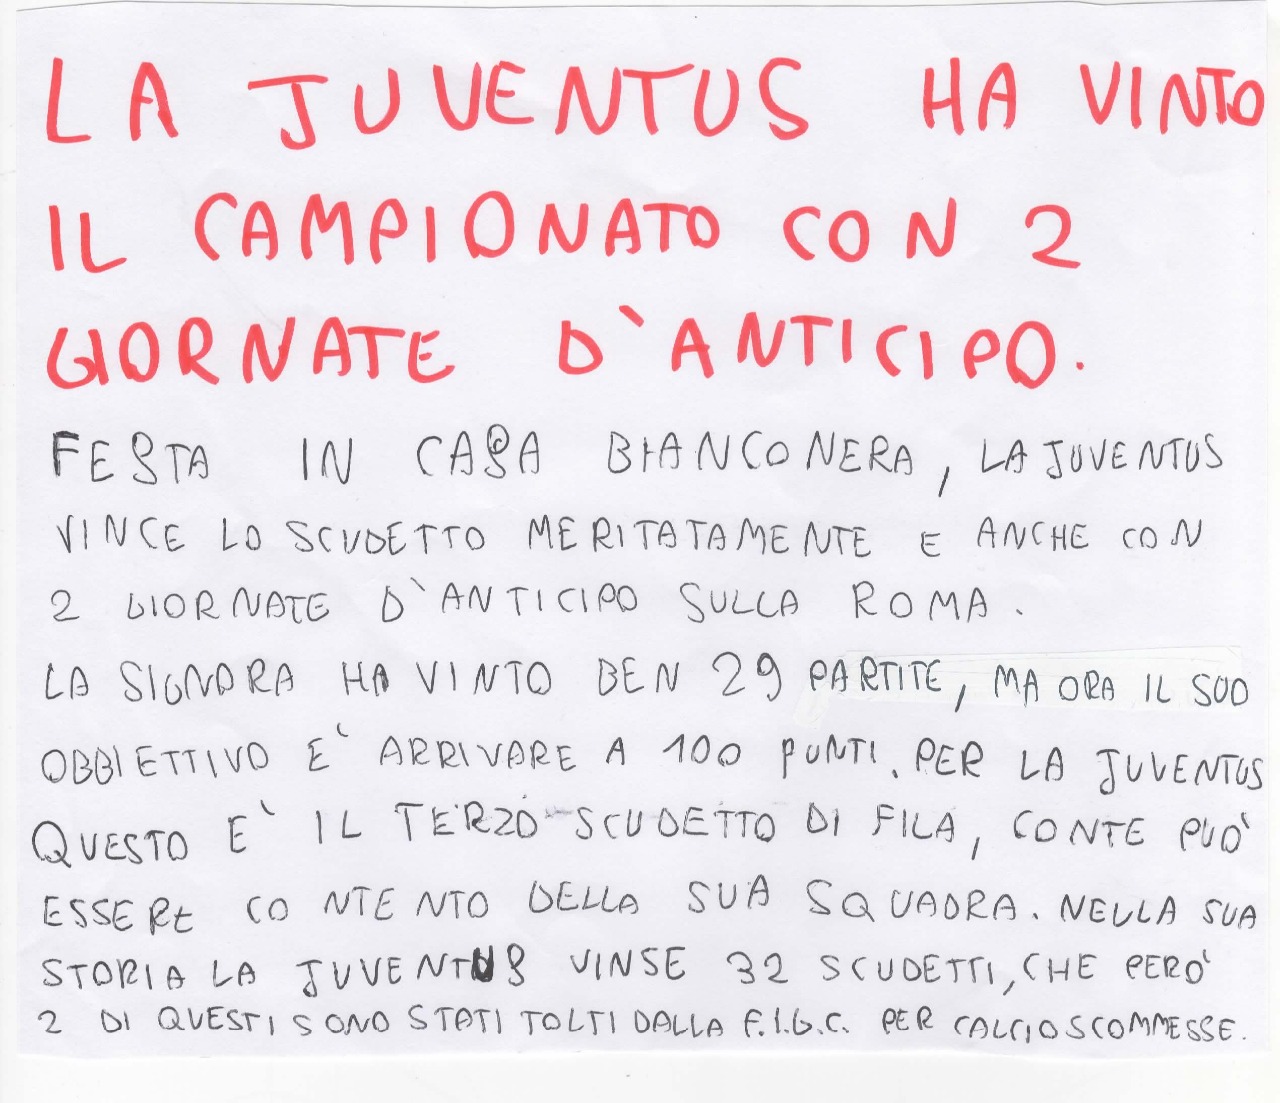 LA JUVENTUS HA VINTO
IL CAMPIONATO CON 2
GIORNATE D`ANTICIPO.
FESTA IN CASA BIANCONERA, LA JUVENTUS
VINCE LO SCUDETTO MERITATAMENTE E ANCHE CON
2 GIORNATE D`ANTICIPO SULLA ROMA.
LA SIGNORA HA VINTO BEN 29 PARTITE, MA ORA IL SUO
OBBIETTIVO E` ARRIVARE A 100 PUNTI. PER LA JUVENTUS
QUESTO E` IL TERZO SCUDETTO DI FILA, CONTE PUO`
ESSERE CONTENTO DELLA SUA SQUADRA. NELLA SUA
STORIA LA JUVENTUS VINSE 32 SCUDETTI, CHE PERO`
2 DI QUESTI SONO STATI TOLTI DALLA F.I.G.C. PER CALCIOSCOMMESSE.